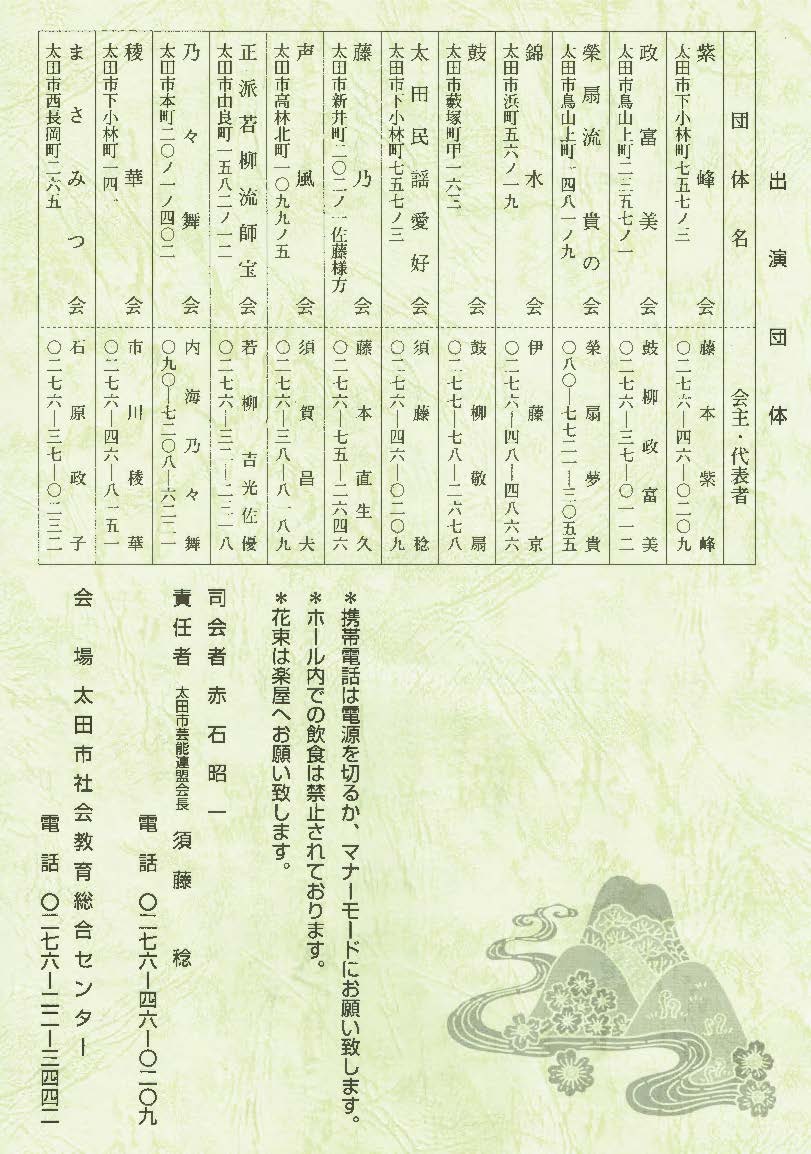 出演団体
団体名 会主・代表者
紫峰会 藤本紫峰
太田市下小林町七五七ノ三 〇二七六―四六―〇二〇九
政富美会 鼓柳政富美
太田市鳥山上町二三五七ノ一 〇二七六―三七―〇一一二
榮扇流貴の会 榮扇夢貴
太田市鳥山上町一四八一ノ九 〇八〇―七七二一―三〇五五
錦水会 伊藤京
太田市浜町五六ノ一九 〇二七六―四八―四八六六
鼓会 鼓柳敬扇
太田市藪塚町甲一六三 〇二七七―七八―二六七八
太田民謡愛好会 須藤稔
太田市下小林町七五七ノ三 〇二七六―四六―〇二〇九
藤乃会 藤本直生久
太田市新井町二〇二ノ一佐藤様方 〇二七六―七五―二六四六
声風会 須賀昌夫
太田市高林北町一〇九九ノ五 〇二七六―三八―八一八九
正派若柳流師宝会 若柳吉光佐優
太田市由良町一五八二ノ一二 〇二七六―三二―二三一八
乃々舞会 内海乃々舞
太田市本町二〇ノ一ノ四〇二 〇九〇―七二〇八―六二二一
稜華会 市川稜華
太田市下小林町一四一 〇二七六―四六―八一五一
まさみつ会 石原政子
太田市西長岡町二六五 〇二七六―三七―〇二三二
＊携帯電話は電源を切るか、マナーモードにお願い致します。
＊ホール内での飲食は禁止されております。
＊花束は楽屋へお願い致します。
司会者 赤石昭一
責任者 太田市芸能連盟会長 須藤稔
電話 〇二七六―四六―〇二〇九
会場 太田市社会教育総合センター
電話 〇二七六―二二―三四四二